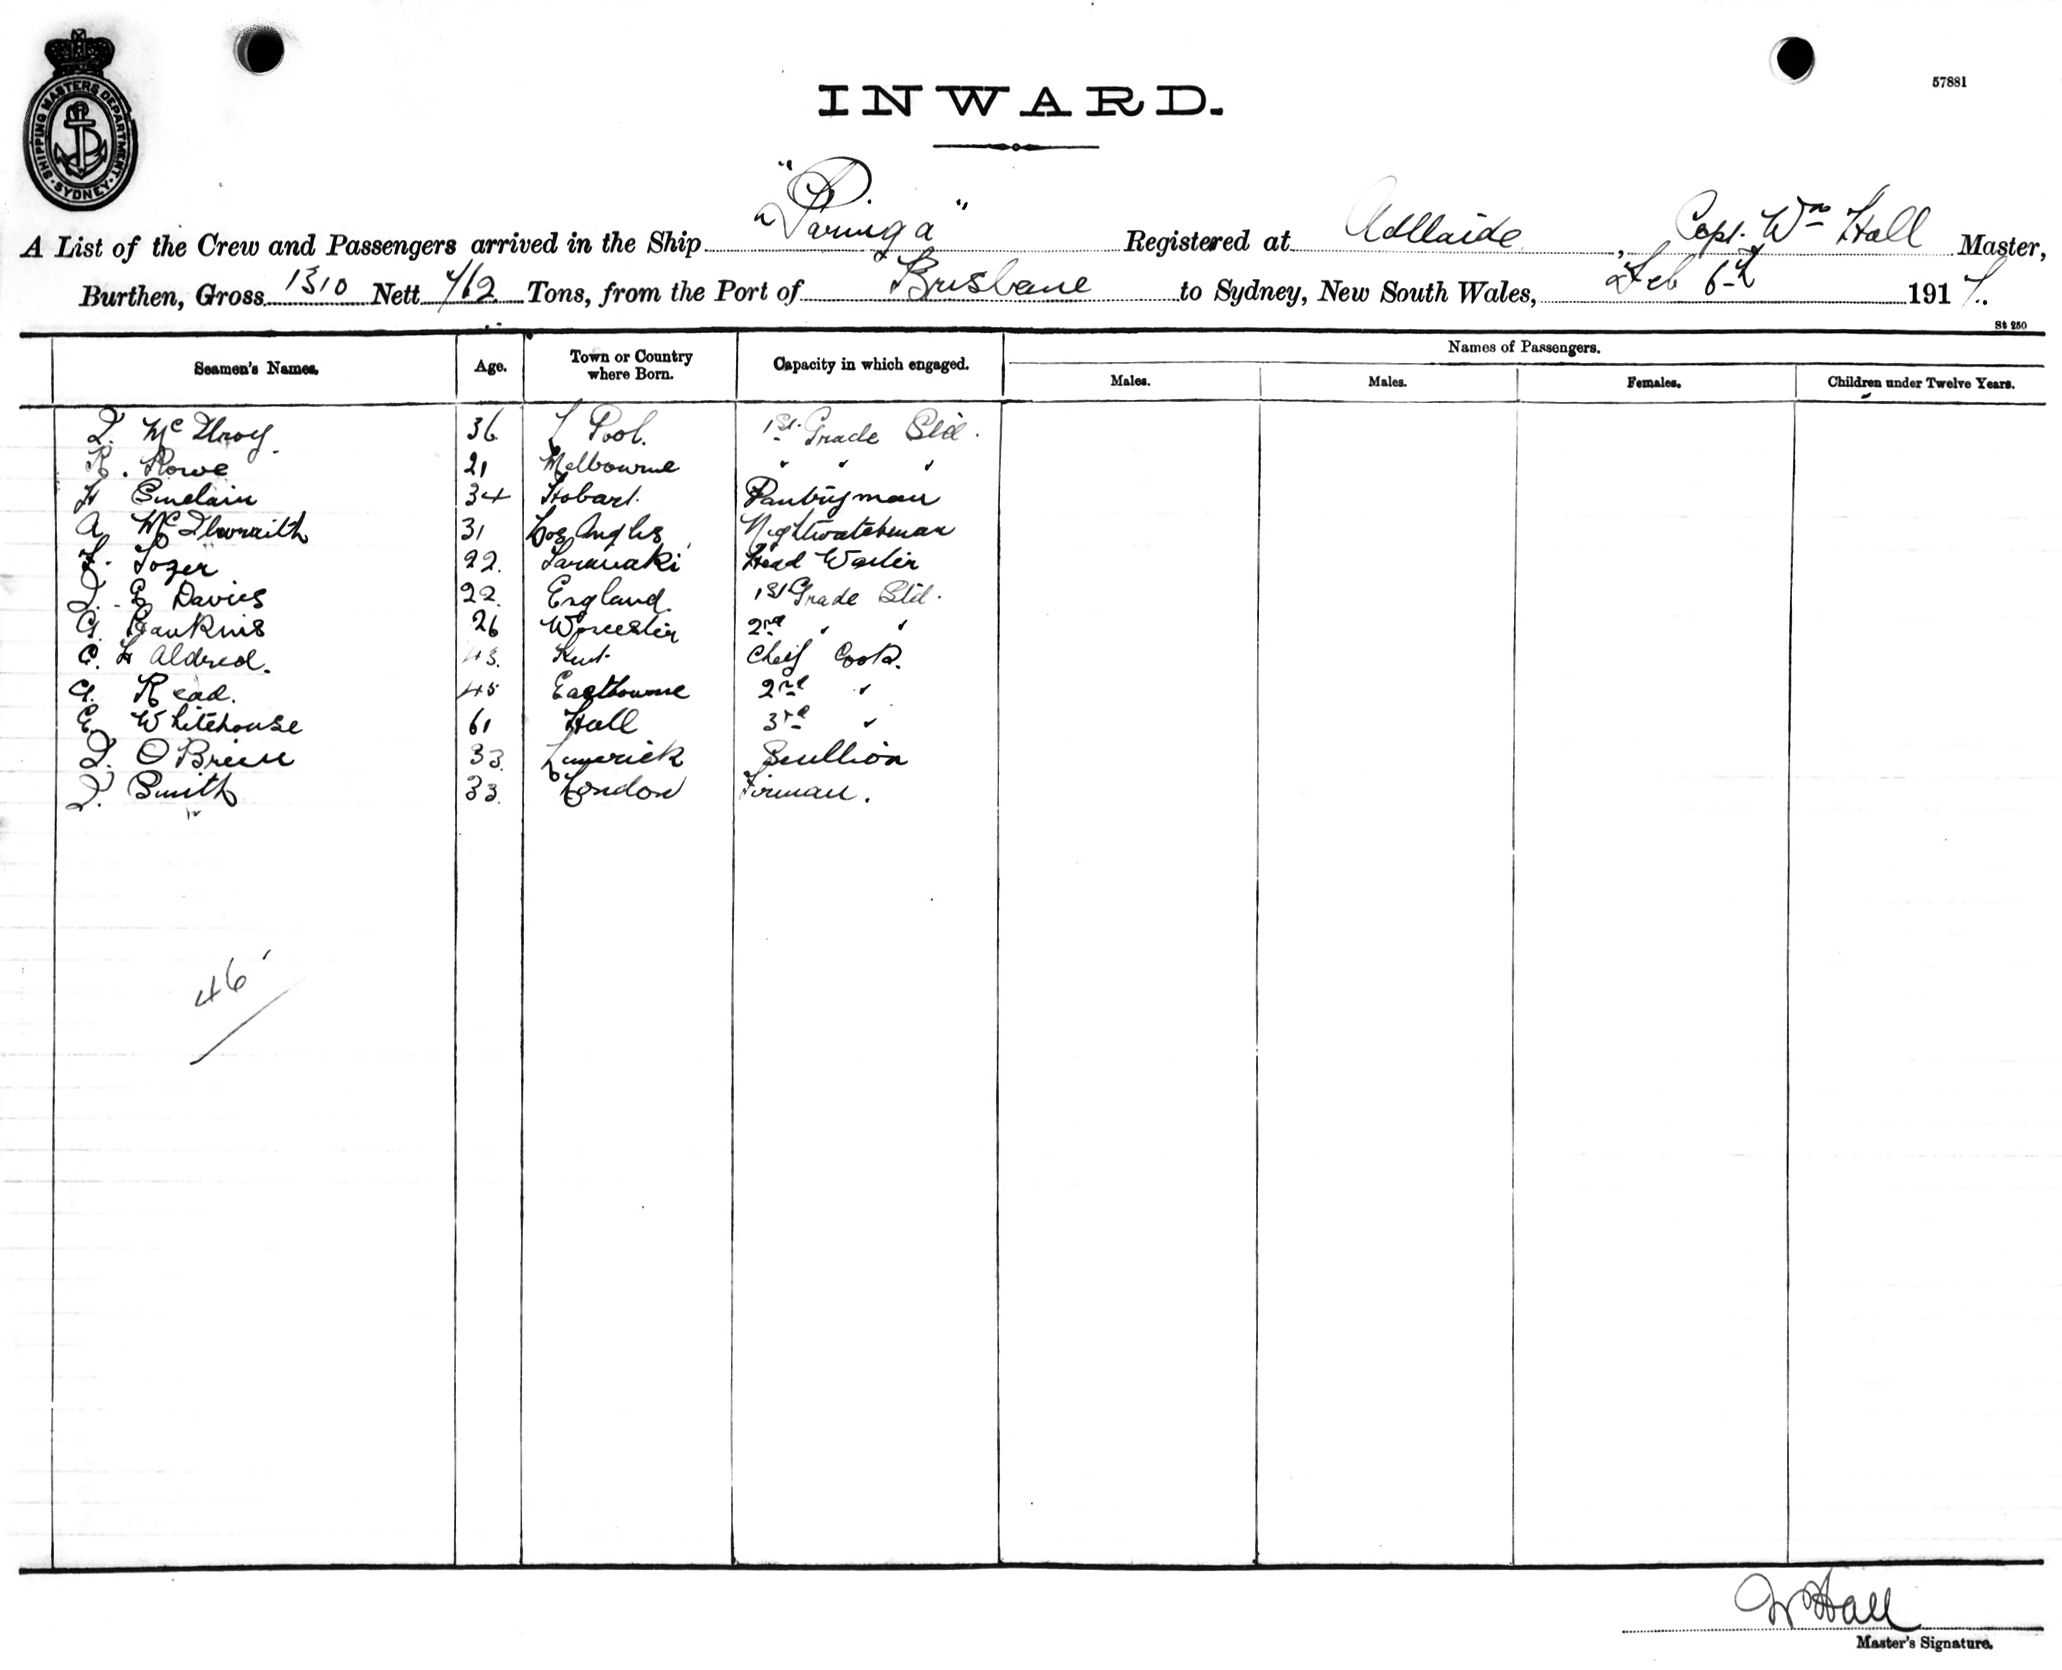 SHIPPING MASTERS DEPARTMENT SYDNEY
57881
INWARD.
A List of the Crew and Passengers arrived in the Ship "Paringa" Registered at Adelaide, Capt. Wm Hall Master,
Burthen, Gross 1310 Nett 462 Tons, from the Port of Brisbane to Sydney, New South Wales, Feb 6th 1917.
St 250
Seamen's Names. Age. Town or Country where Born. Capacity in which engaged. Names of Passengers.
Males. Males. Females. Children under Twelve Years.
J. McIlroy. 36 L Pool. 1st Grade Std.
R. Rowe 21 Melbourne " " "
H Sinclair 34 Hobart Pantryman
A McIlwraith 31 Los Angles Nightwatchman
F. Tozer 22. Taranaki Head Waiter
J. E Davies 22. England. 1st Grade Std.
G. Hankins 26 Worcester 2nd " "
C. H Aldred. 43. Kent Cheif Cook.
G. Read. 45 Eastbourne 2nd "
E. Whitehouse 61 Hull 3rd "
J. O Brien 33. Limerick Scullion
J. Smith 33. London Firman.
46
W Hall
Master's Signature.